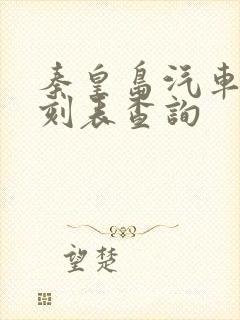 秦皇島汽車
刻表查詢
望楚